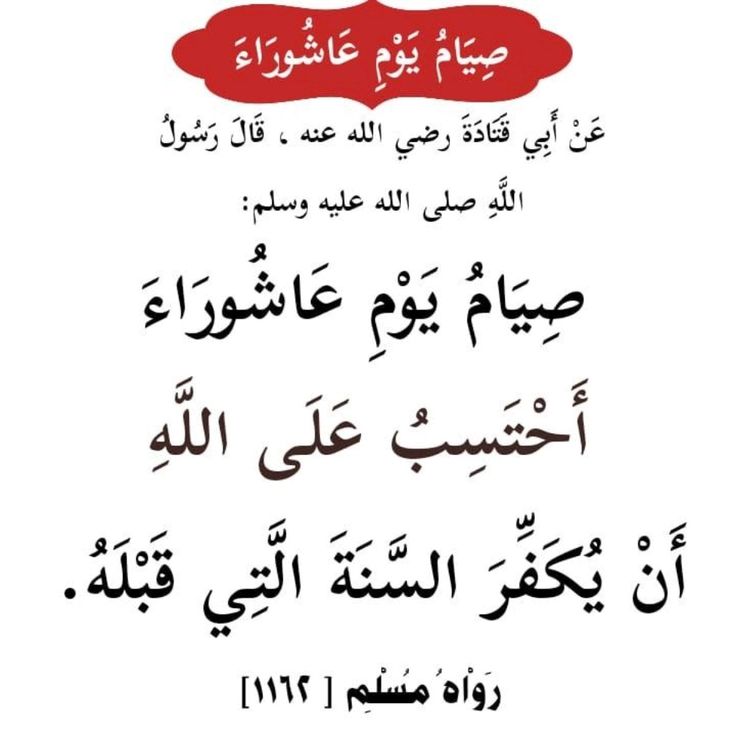 صِيَامُ يَوْمِ عَاشُورَاءَ
عَنْ أَبِي قَتَادَةَ رضي الله عنه ، قَالَ رَسُولُ
اللَّهِ صلى الله عليه وسلم:
صِيَامُ يَوْمِ عَاشُورَاءَ
أَحْتَسِبُ عَلَى اللَّهِ
أَنْ يُكَفِّرَ السَّنَةَ الَّتِي قَبْلَهُ.
رَوَاهُ مُسْلِم [ ١١٦٢]